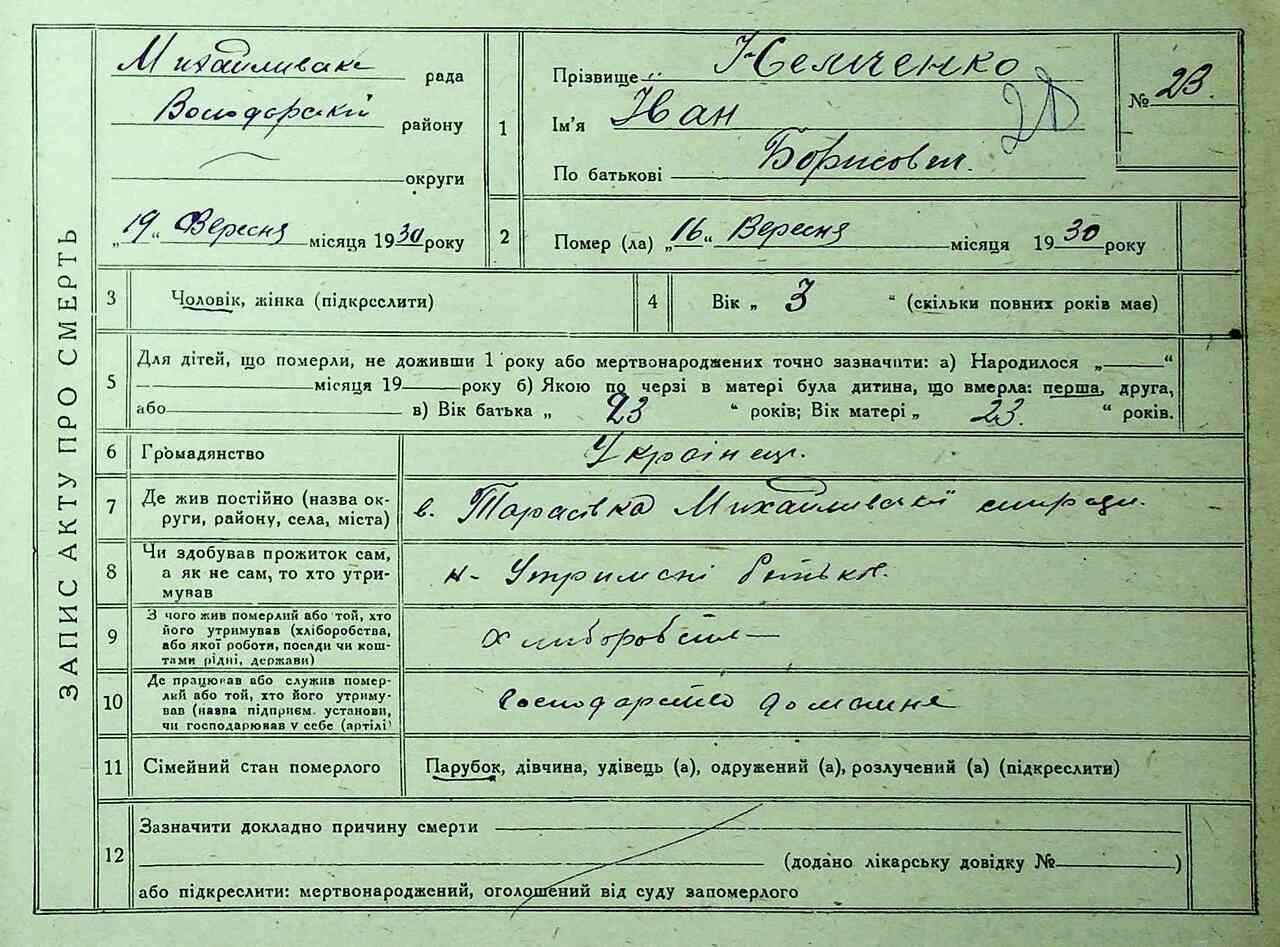 ЗАПИС АКТУ ПРО СМЕРТЬ
Михайливське рада
Володарский району
округи
„19“ Вересня місяця 1930 року
1
Прізвище Немченко
Ім'я Іван
По батькові Борисович.
№ 23.
2 Помер (ла) „16“ Вересня місяця 1930 року
3 Чоловік, жінка (підкреслити)
4 Вік „ 3 “ (скільки повних років має)
5 Для дітей, що померли, не доживши 1 року або мертвонароджених точно зазначити: а) Народилося „ “
місяця 19 року б) Якою по черзі в матері була дитина, що вмерла: перша, друга,
або в) Вік батька „ 23 “ років; Вік матері „ 23. “ років.
6 Громадянство Українец.
7 Де жив постійно (назва ок-
руги, району, села, міста) в. Тарасівка Михайливської
8 Чи здобував прожиток сам,
а як не сам, то хто утри-
мував на Утримані батька.
9 З чого жив померлий або той, хто
його утримував (хліборобства,
або якої роботи, посади чи кош-
тами рідні, держави)
10 Де працював або служив помер-
лий або той, хто його утриму-
вав (назва підприєм. установи,
чи господарював у себе (артілі) господарство домашне
11 Сімейний стан померлого Парубок, дівчина, удівець (а), одружений (а), розлучений (а) (підкреслити)
12 Зазначити докладно причину смерти
(додано лікарську довідку № )
або підкреслити: мертвонароджений, оголошений від суду запомерлого